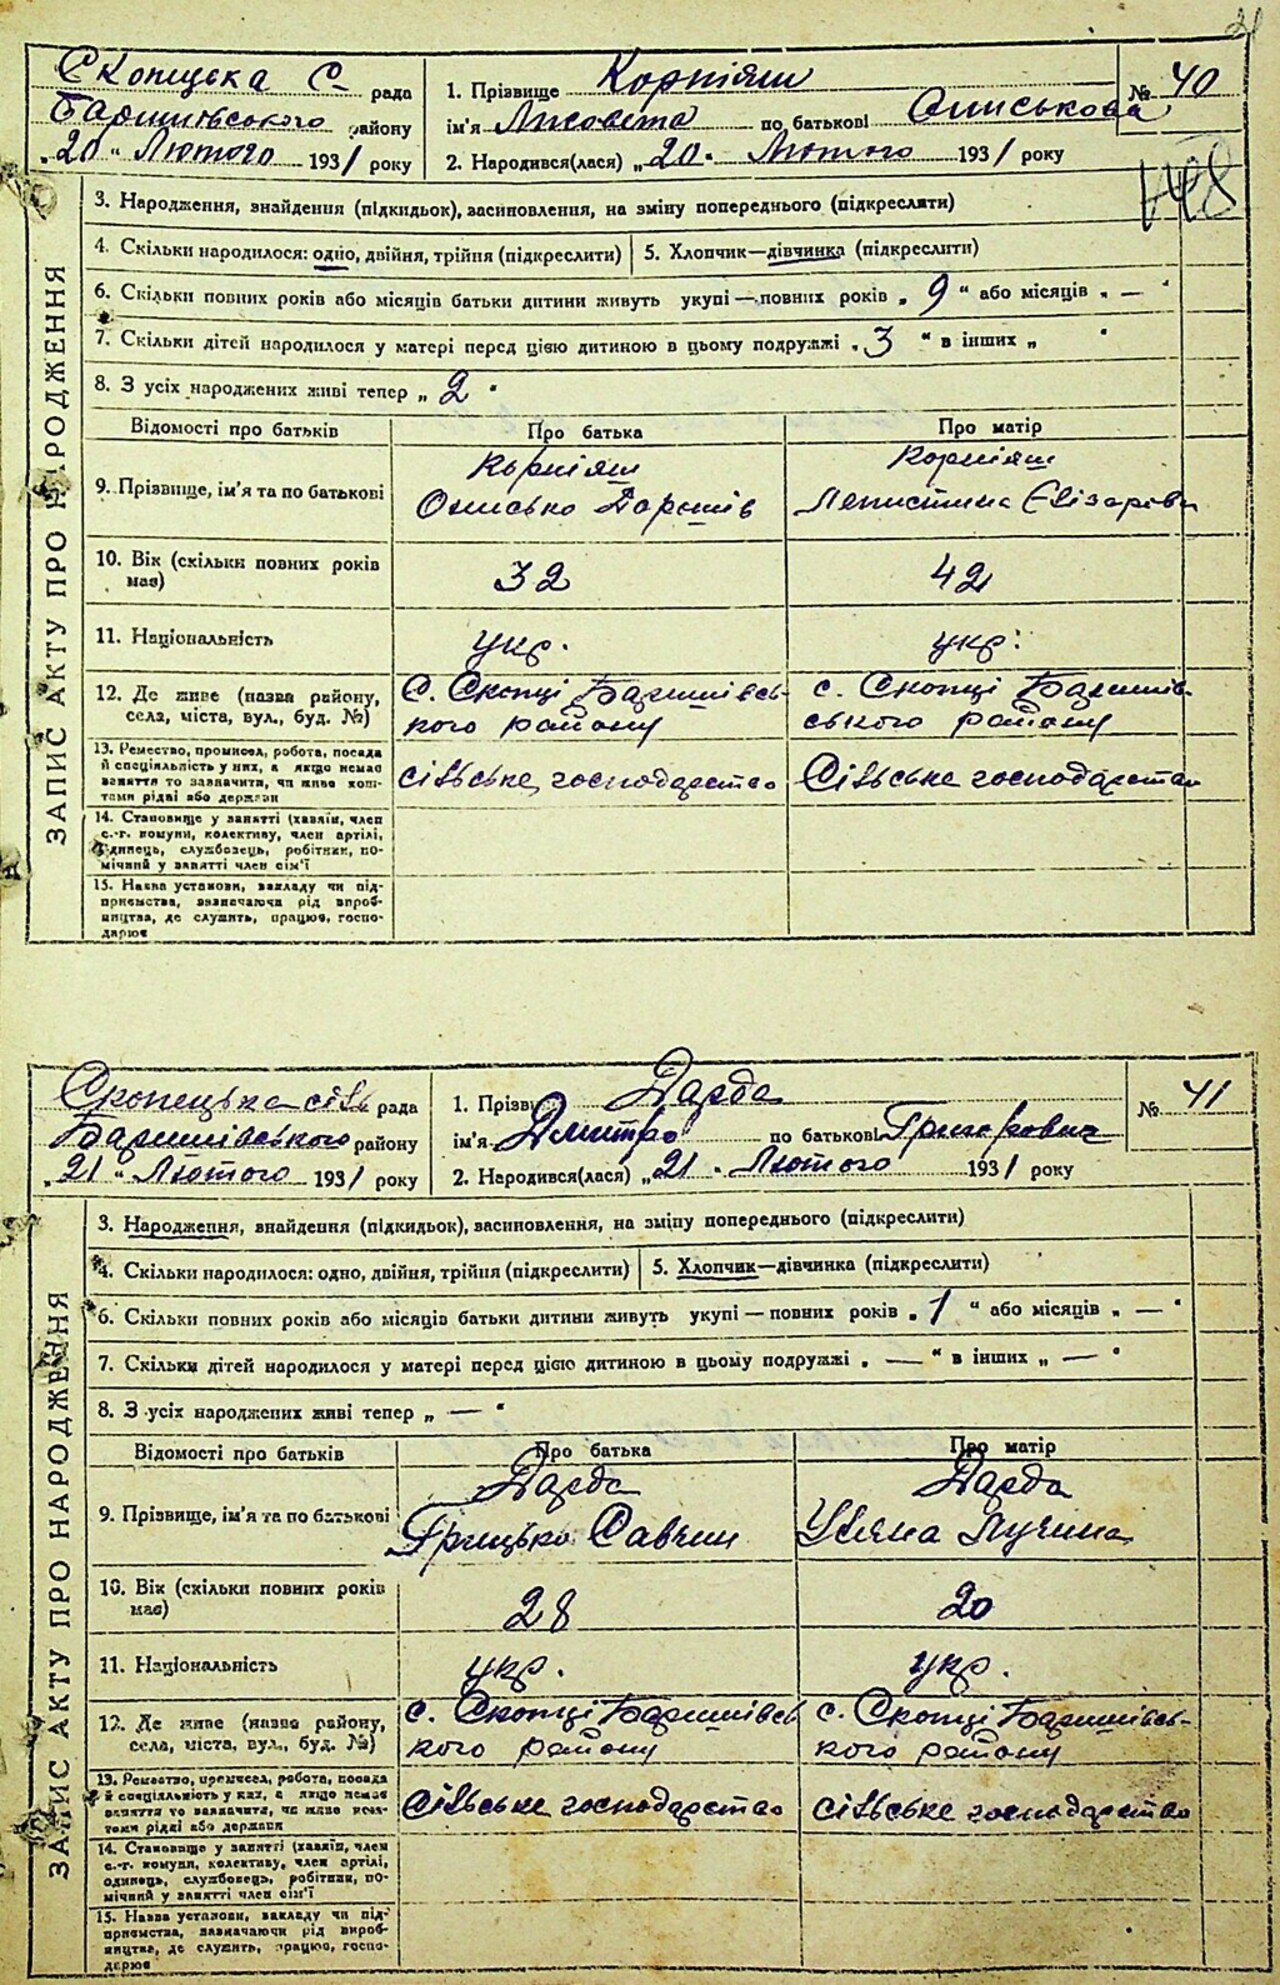 21
Скопецька С. рада
Баришівського району
„20“ Лютого 1931 року
1. Прізвище Корпіяш
ім'я Лисовета по батькові Ониськова
2. Народився(лася) „20“ Лютого 1931 року
№ 40
ЗАПИС АКТУ ПРО НАРОДЖЕННЯ
3. Народження, знайдення (підкидьок), засиновлення, на зміну попереднього (підкреслити)
4. Скільки народилося: одно, двійня, трійня (підкреслити)
5. Хлопчик—дівчинка (підкреслити)
6. Скільки повних років або місяців батьки дитини живуть укупі—повних років „9“ або місяців „—“
7. Скільки дітей народилося у матері перед цією дитиною в цьому подружжі „3“ в інших „ “
8. З усіх народжених живі тепер „2“
Відомості про батьків
Про батька
Про матір
9. Прізвище, ім'я та по батькові
Корпіяш
Онисько
Корпіяш
10. Вік (скільки повних років має)
32
42
11. Національність
укр.
укр.
12. Де живе (назва району, села, міста, вул., буд. №)
С. Скопці Баришівсь-
кого району
с. Скопці Баришів-
ського району
13. Ремество, промисел, робота, посада
й спеціяльність у них, а якщо немає
заняття то зазначити, чи живе кош-
тами рідні або держави
сільське господарство
Сільське господарство
14. Становище у занятті (хазяїн, член
с.-г. комуни, колективу, член артілі,
одинець, службовець, робітник, по-
мічний у занятті член сім'ї
15. Назва установи, закладу чи під-
приємства, зазначаючи рід вироб-
ництва, де служить, працює, госпо-
дарює
Скопецька сіль рада
Баришівського району
„21“ Лютого 1931 року
1. Прізвище Дарда
ім'я Дмитро по батькові Григорович
2. Народився(лася) „21“ Лютого 1931 року
№ 41
ЗАПИС АКТУ ПРО НАРОДЖЕННЯ
3. Народження, знайдення (підкидьок), засиновлення, на зміну попереднього (підкреслити)
4. Скільки народилося: одно, двійня, трійня (підкреслити)
5. Хлопчик—дівчинка (підкреслити)
6. Скільки повних років або місяців батьки дитини живуть укупі—повних років „1“ або місяців „—“
7. Скільки дітей народилося у матері перед цією дитиною в цьому подружжі „—“ в інших „—“
8. З усіх народжених живі тепер „—“
Відомості про батьків
Про батька
Про матір
9. Прізвище, ім'я та по батькові
Дарда
Грицько Савчин
Дарда
Уляна Лучина
10. Вік (скільки повних років має)
28
20
11. Національність
укр.
укр.
12. Де живе (назва району, села, міста, вул., буд. №)
с. Скопці Баришівсь
кого району
с. Скопці Баришівсь-
кого району
13. Ремество, промисел, робота, посада
й спеціяльність у них, а якщо немає
заняття то зазначити, чи живе кош-
тами рідні або держави
сільське господарство
сільське господарство
14. Становище у занятті (хазяїн, член
с.-г. комуни, колективу, член артілі,
одинець, службовець, робітник, по-
мічний у занятті член сім'ї
15. Назва установи, закладу чи під-
приємства, зазначаючи рід вироб-
ництва, де служить, працює, госпо-
дарює